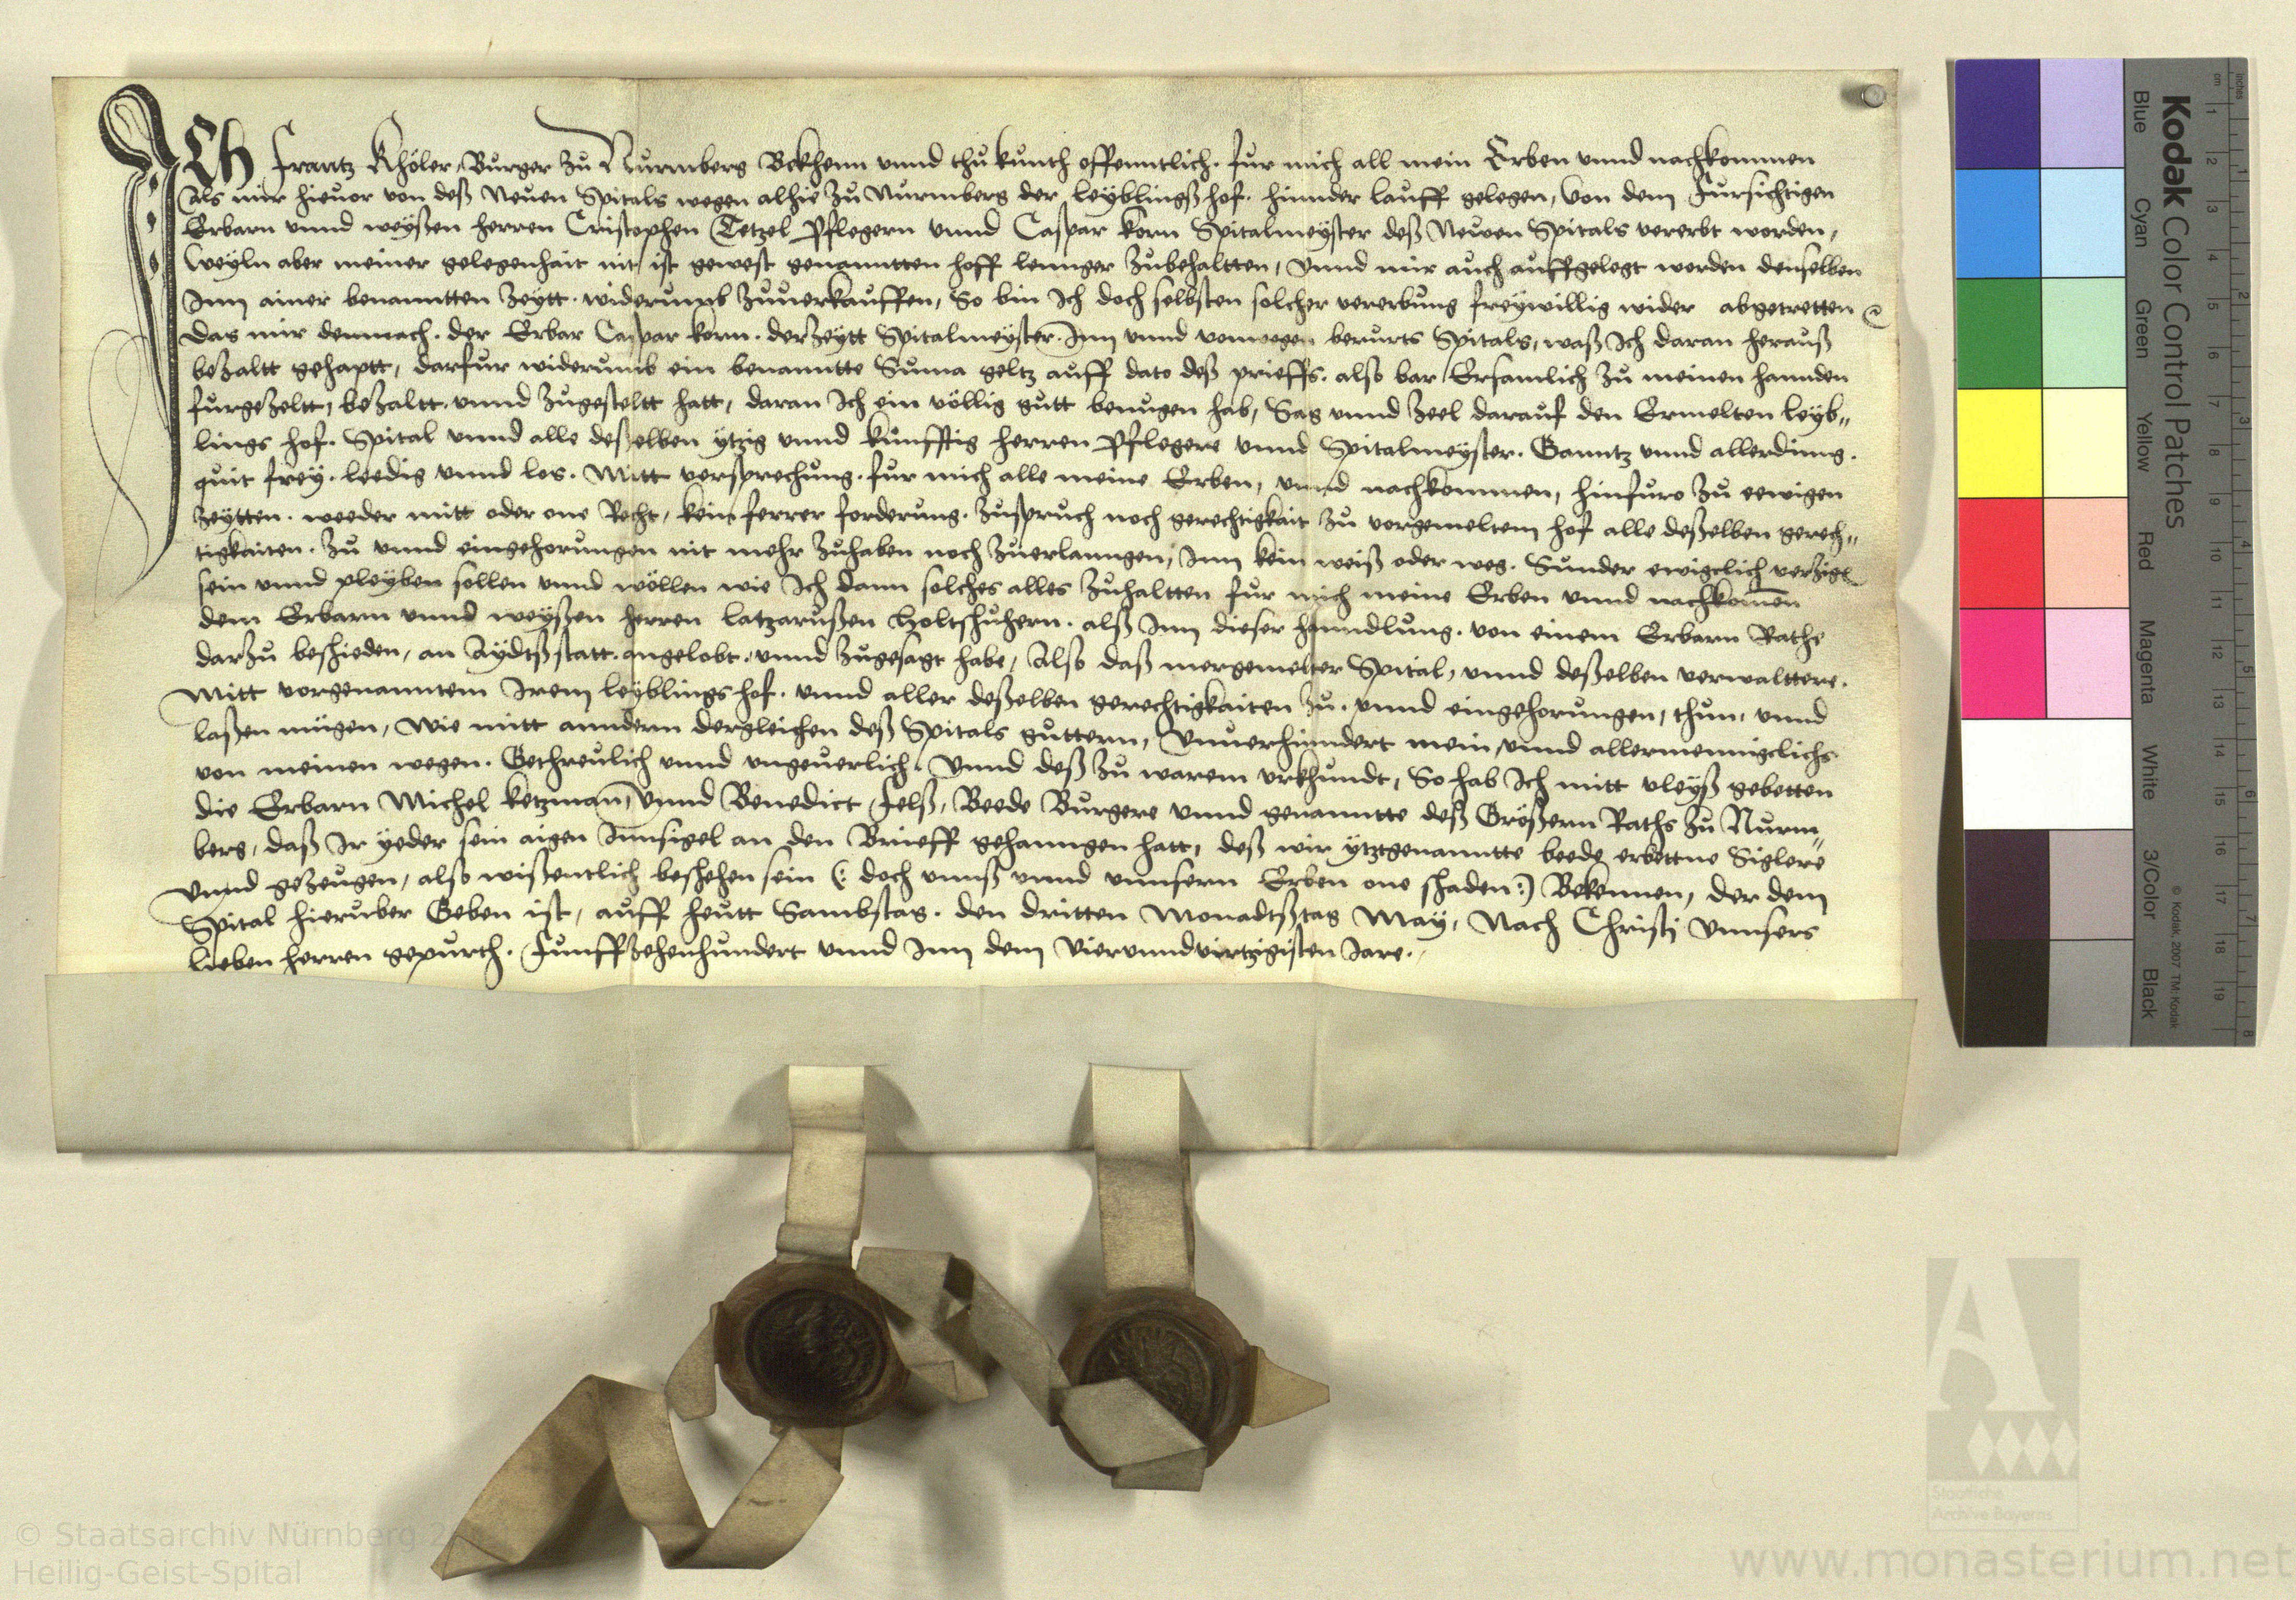 Ich Frantz Khöler Burger zu Nurmberg Bekhenn vnnd thu kunth offenntlich. fur mich all mein Erben vnnd nachkommen
Als mir hieuor von deß Neuen Spitals wegen alhie zu Nurmberg der leyblingßhof. hinnder lauff gelegen, Von dem Fursichtigen
Erbarn vnnd weyßen herren Cristophen Tetzel Pflegern vnnd Caspar korn Spitalmeyster deß Neuen Spitals vererbt worden,
Weyln aber meiner gelegenhait nit ist gewest genanntten hoff lennger zubehaltten, Vnnd mir auch auffgelegt worden denselben
Inn ainer benanntten zeytt. widerumb zuuerkauffen, So bin Ich doch selbsten solcher vererbung freywillig wider abgetretten
Das mir demnach. der Erbar Caspar korn. derzeytt Spitalmeyster. Inn vnnd vonwegen berurts Spitals, waß Ich daran herauß
bezaltt gehaptt, darfur widerumb ein benanntte Suma geltz auff dato deß prieffs. also bar Ersamlich zu meinen hannden
furgezeltt, bezaltt. vnnd zugesteltt hatt, daran Ich ein völlig gutt benugen hab, Sag vnnd zeel darauf den Ermelten leyb„
lings hof. Spital vnnd alle desselben ytzig vnnd kunfftig herren Pflegere vnnd Spitalmeyster. Ganntz vnnd allerdinng.
quit frey. leedig vnnd los. Mitt versprechung. fur mich alle meine Erben, vnnd nachkommen, hinfuro zu eewigen
zeytten. weeder mitt oder one Recht, kein ferrer forderung. zuspruch noch gerechtigkait zu vorgemeltem hof alle deßelben gerech„
tigkaiten. zu vnnd eingehorungen nit mehr zuhaben noch zuerlanngen, Inn kein weiß oder weg. Sunder ewigclich verzigen
sein vnnd pleyben sollen vnnd wöllen wie Ich dann solches alles zuhaltten fur mich meine Erben vnnd nachkomen
dem Erbarn vnnd weyßen herren latzarußen Holtshuhern. alß Inn dieser hanndlung. von einem Erbarn Rathe
darzu beshieden, an Aydtßstatt. angelobt. vnnd zugesagt habe, Also daß mergemelter Spital, vnnd deßelben verwalttere.
Mitt vorgenanntem Irem leyblings hof. vnnd aller deßelben gerechtigkaiten zu. vnnd eingehorungen, thun, vnnd
laßen mügen, Wie mitt anndern dergleichen deß Spitals guttern, Vnuerhinndert mein, vnnd allermennigclichs
von meinen wegen. Gethreulich vnnd vngeuerlich. Vnnd deß zu warem vrkhundt, So hab Ich mitt vleyß gebetten
die Erbarn Michel ketzman, Vnnd Benedict Felß, Beede Burgere vnnd genanntte deß Größern Raths zu Nurm„
berg, daß Ir yeder sein aigen Innsigel an den Brieff gehanngen hatt, deß wir ytztgenanntte beede erbettne Siglere
Vnnd gezeugen, also wißentlich beshehen sein (: doch vnnß vnnd vnnsern Erben one shaden :) Bekennen, der dem
Spital hieruber Geben ist, auff heutt Sambstag. den dritten Monadtßtag May, Nach Christj Vnnsers
lieben herren gepurth. Funffzehenhundert vnnd Inn dem Viervnndvirtzigisten Jare.
Kodak Color Control Patches
Blue Cyan Green Yellow Red Magenta White 3/Color Black
© Kodak, 2007 TM: Kodak
cm 1 2 3 4 5 6 7 8 9 10 11 12 13 14 15 16 17 18 19
inches 1 2 3 4 5 6 7 8
Staatliche
Archive Bayerns
© Staatsarchiv Nürnberg
Heilig-Geist-Spital
www.monasterium.net